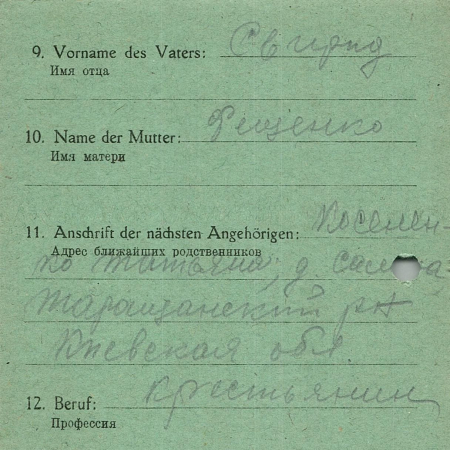 9. Vorname des Vaters: Свирид
Имя отца
10. Name der Mutter: Фещенко
Имя матери
11. Anschrift der nächsten Angehörigen:
Адрес ближайших родственников
ко Татьяна, д.
Таращанский рн
Киевская обл.
12. Beruf: крестьянин
Профессия